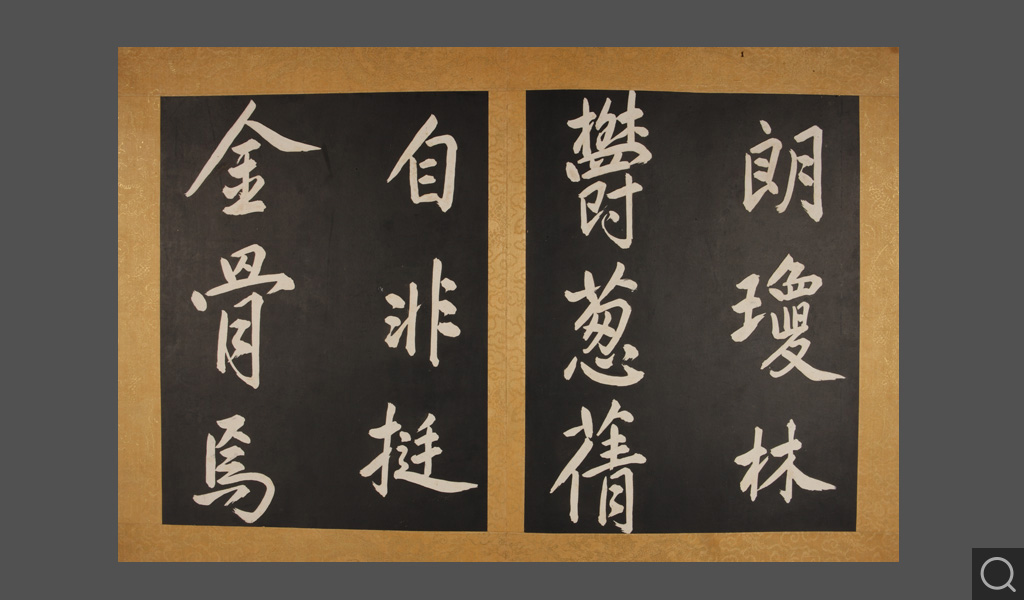 朗瓊林
欎葱蒨
自非挺
金骨焉